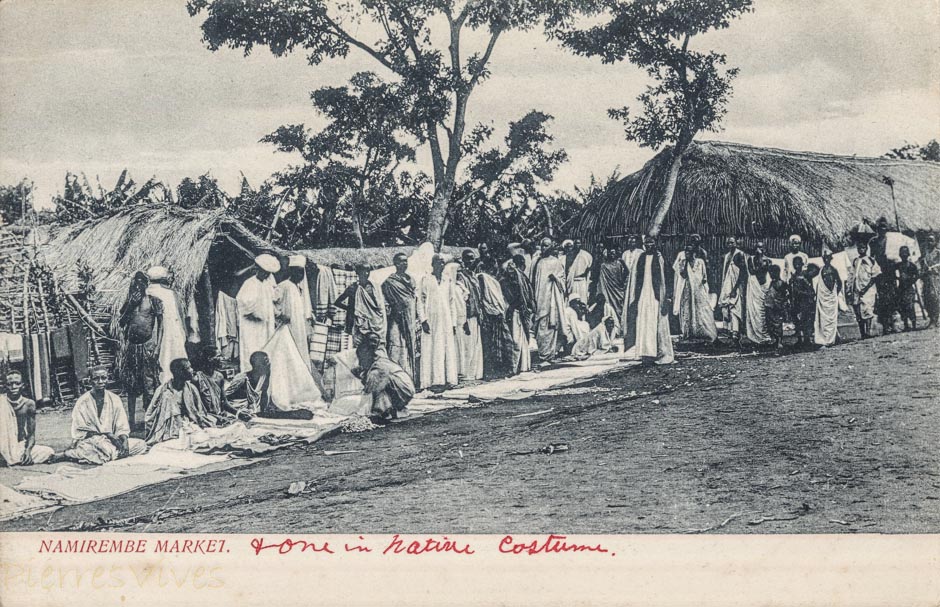 NAMIREMBE MARKET. & one in Native Costume.
PierresVives